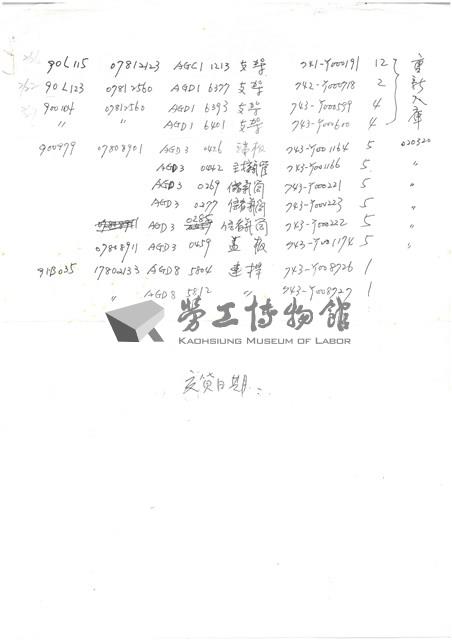 90L115 07812123 AGC1 1213 支架 741-Y000191 12
90L123 07812560 AGD1 6377 支架 742-Y000718 2
900104 07812560 AGD1 6393 支架 743-Y000559 4
" " AGD1 6401 支架 743-Y000600 4
重新入庫
900979 07808901 AGD3 0426 743-Y001164 5 020320
AGD3 0442 743-Y001166 5 "
AGD3 0269 743-Y000221 5 "
AGD3 0277 743-Y000223 5 "
AGD3 0285 743-Y000222 5 "
07808911 AGD3 0459 蓋板 743-Y001174 5 "
91B035 17802133 AGD8 5804 連桿 743-Y008726 1
" AGD8 5812 " 743-Y008727 1
勞工博物館
KAOHSIUNG MUSEUM OF LABOR
交貨日期: